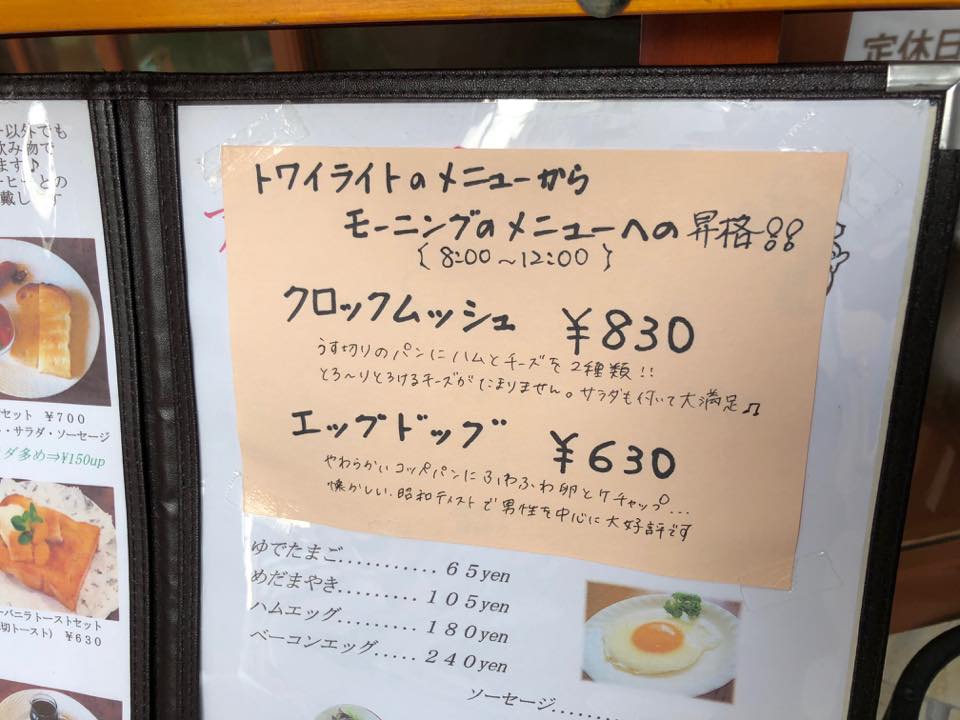 定休日
ー以外でも
飲み物で
ます♪
ーヒーとの
戴します
セット ￥700
・サラダ・ソーセージ
ダ多め⇒¥150up
ーバニラトーストセット
切トースト) ￥630
トワイライトのメニューから
モーニングのメニューへの昇格!!
{ 8:00～12:00 }
クロックムッシュ ¥830
うす切りのパンにハムとチーズを2種類!!
とろ～りとろけるチーズがたまりません。サラダも付いて大満足♫
エッグドッグ ¥630
やわらかいコッペパンにふわふわ卵とケチャップ...
懐かしい昭和テイストで男性を中心に大好評です
ゆでたまご........... 65yen
めだまやき.......... 105yen
ハムエッグ.......... 180yen
ベーコンエッグ..... 240yen
ソーセージ........